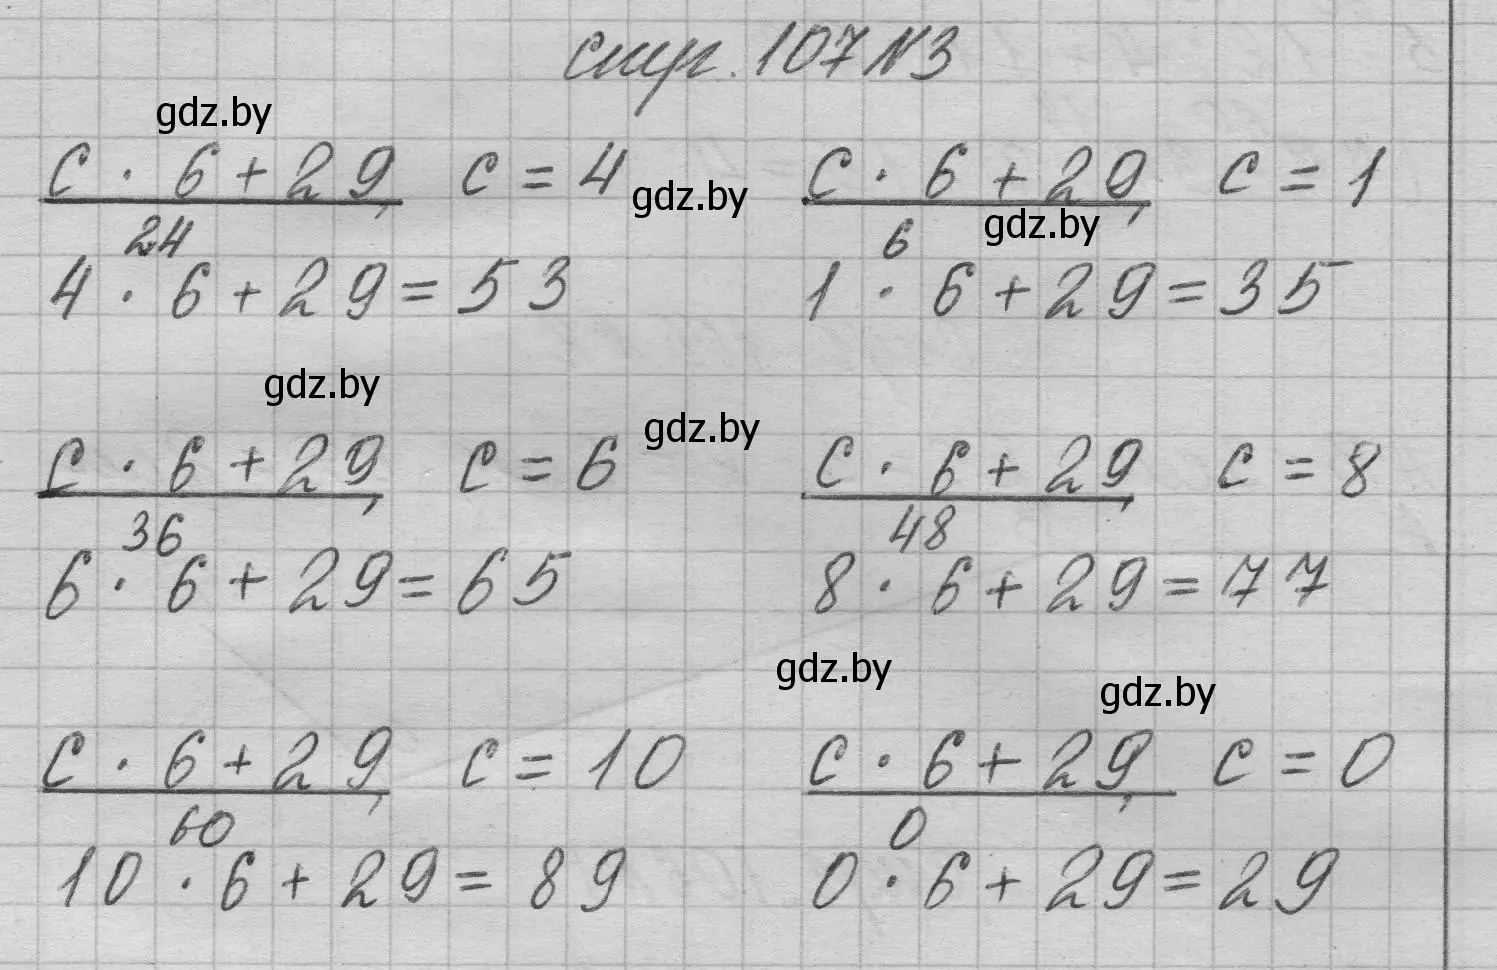 стр. 107 №3
gdz.by
c · 6 + 29, c = 4
gdz.by
c · 6 + 29, c = 1
gdz.by
24
4 · 6 + 29 = 53
6
1 · 6 + 29 = 35
gdz.by
c · 6 + 29, c = 6
gdz.by
c · 6 + 29, c = 8
36
6 · 6 + 29 = 65
48
8 · 6 + 29 = 77
gdz.by
gdz.by
c · 6 + 29, c = 10
c · 6 + 29, c = 0
60
10 · 6 + 29 = 89
0
0 · 6 + 29 = 29